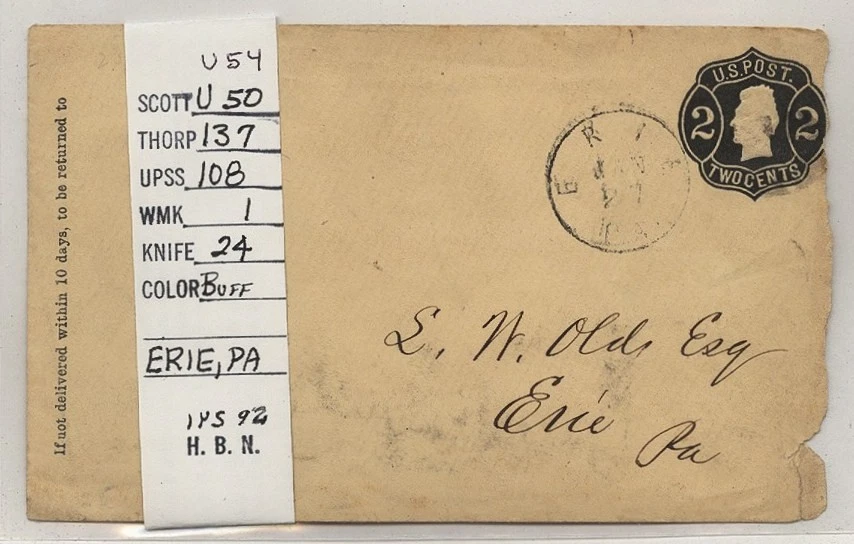 If not delivered within 10 days, to be returned to
U54
SCOTT U 50
THORP 137
UPSS 108
WMK 1
KNIFE 24
COLOR BUFF
ERIE, PA
92
H. B. N.
ERIE
U.S. POST.
2 2
TWO CENTS
L. W. Olds Esq
Erie
Pa